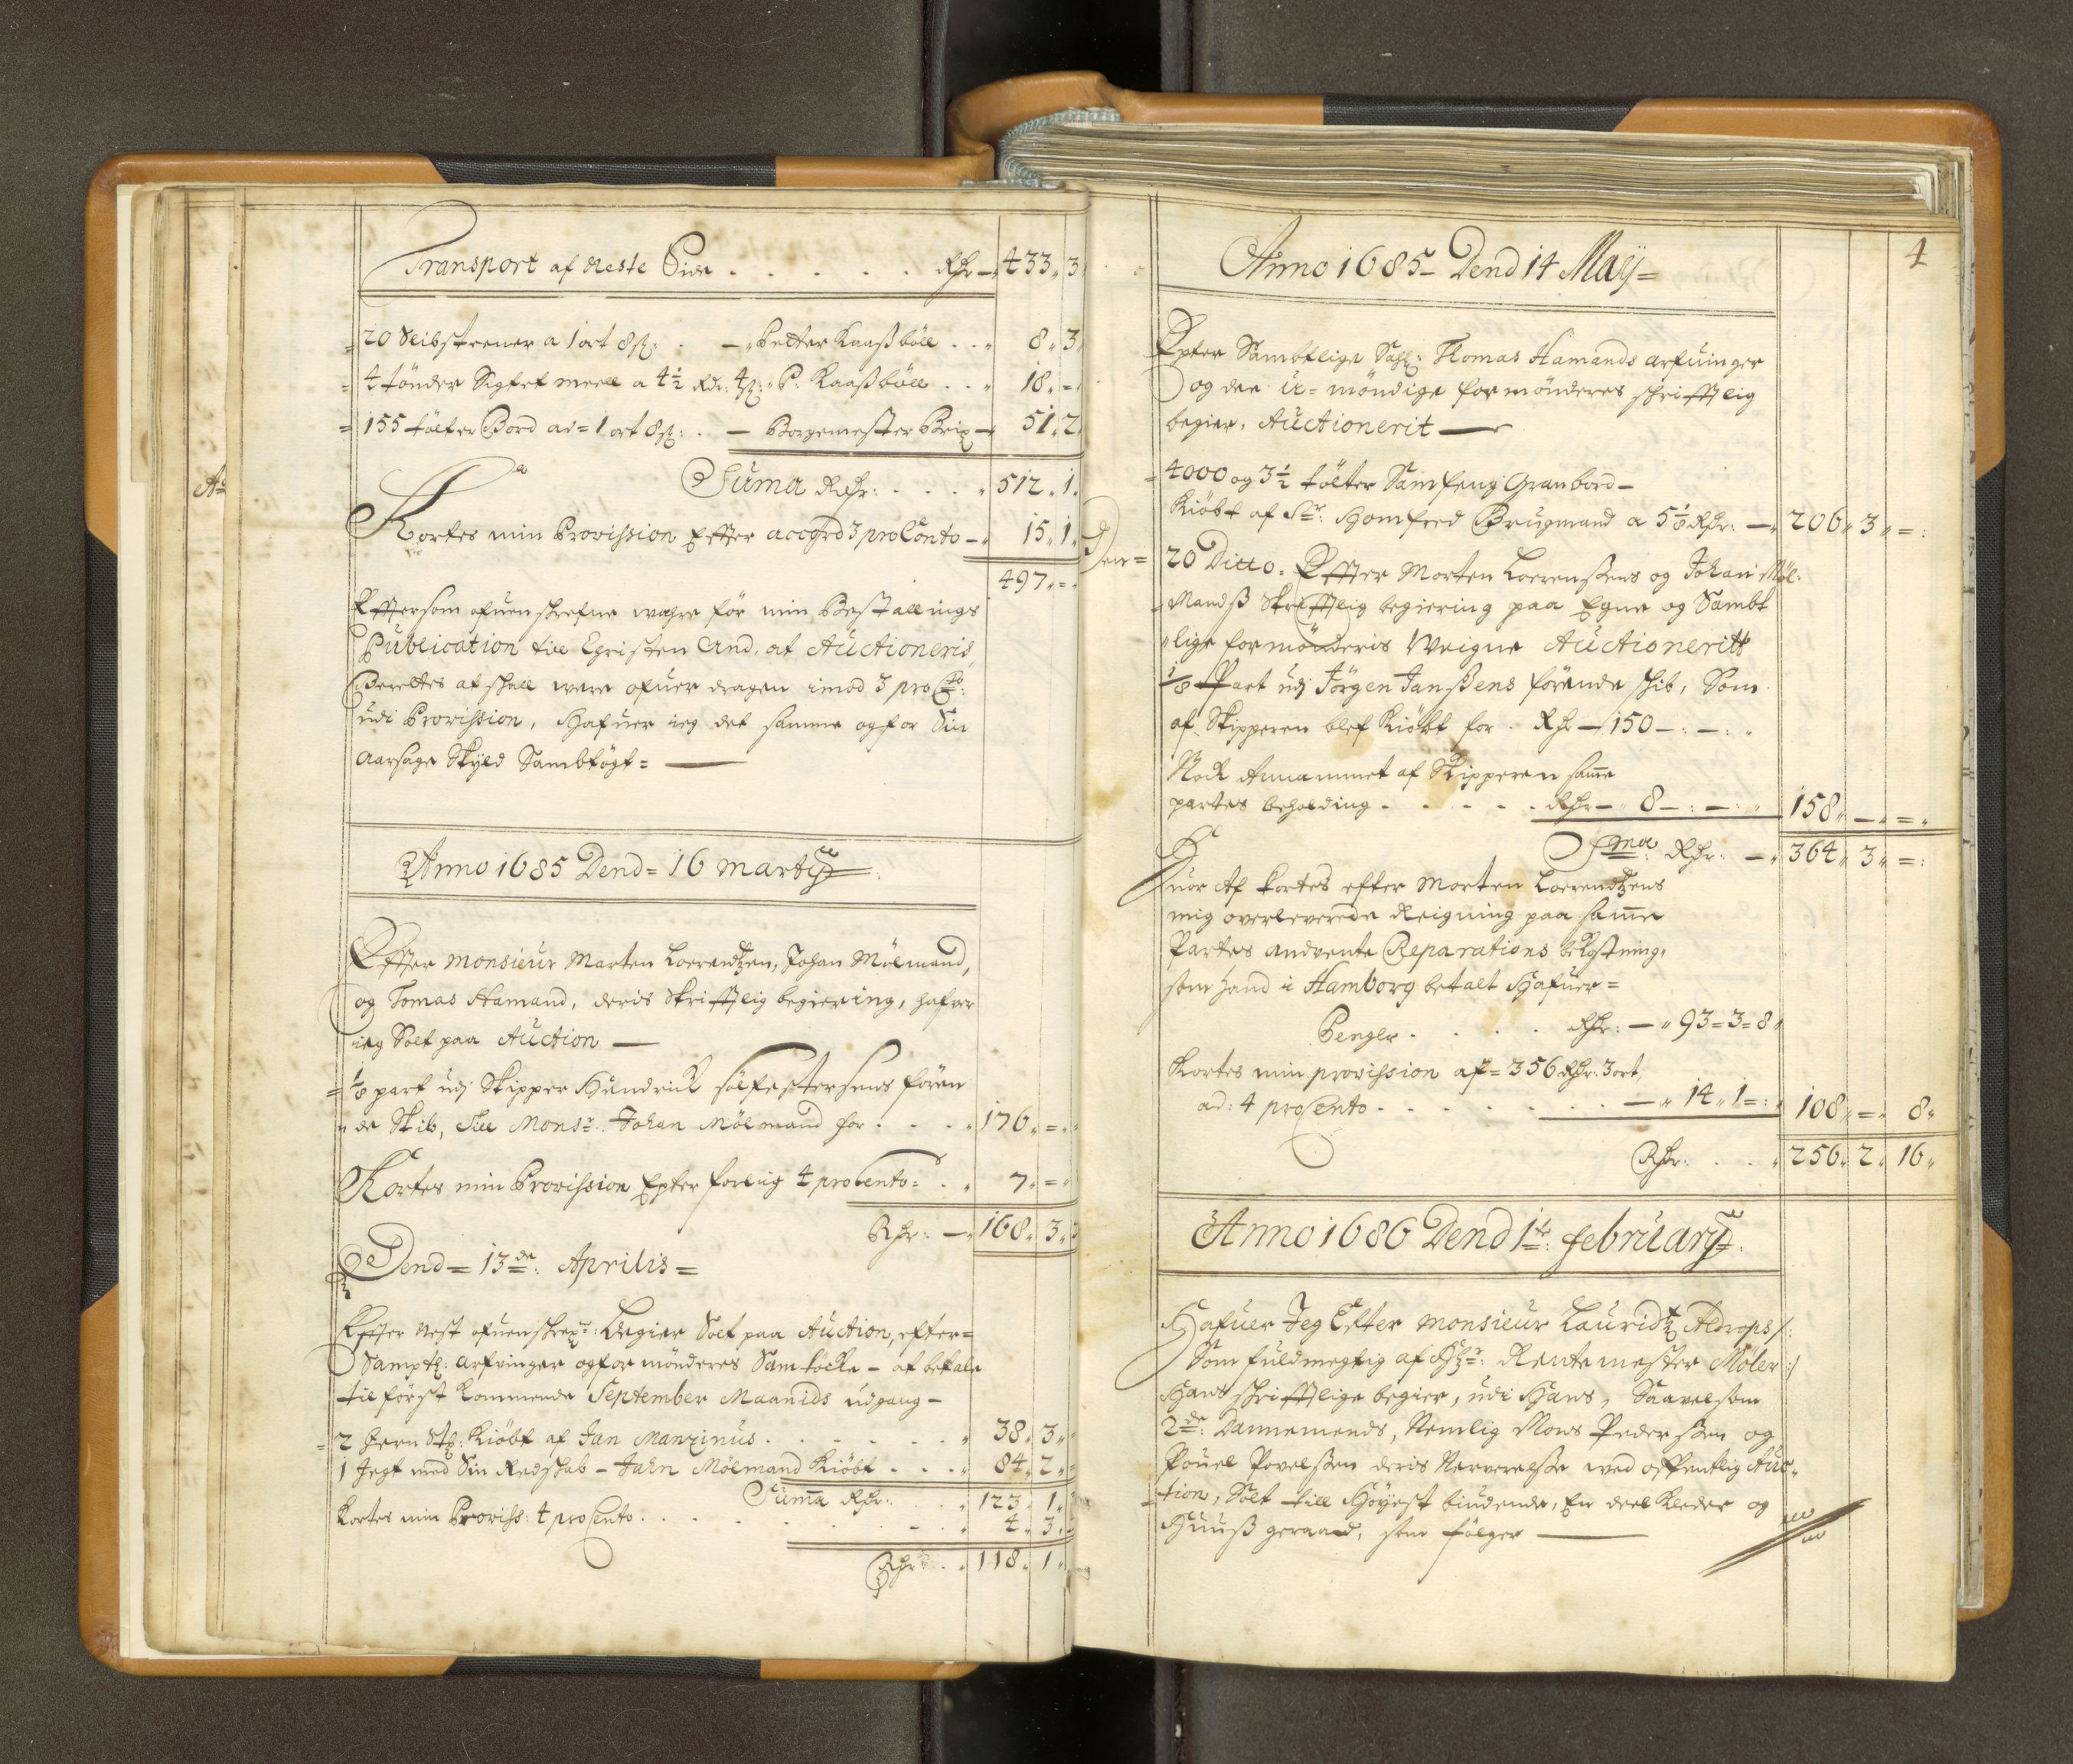 Transport af Neste Side . . . . . Rdr - 433 . 3
= 20 Slibsteener a 1 ort 8 s: . - Petter Kaasböll . . 8 . 3
= 4 tönder Sigtet meell a 4½ Rdr: 4 s: P: Kaasböll . . 18 . =
= 155 tölfter Bord ad = 1 ort 8 s: . - Borgemester Brix - 51 . 2
Suma Rdr: . . . . 512 . 1
A:o
Kortes min Provission Efter accord 3 pro Cento - 15 . 1
497 . =
Eftersom ofuenskrefne wahre för min Bestallings
Publication till Christen And. at Auctioneris
Berettes at skall were ofuerdragen imod 3 pro C:to:
udi Provission, Hafuer ieg det samme og for Sin
Aarsage Skyld Sambtögt = -
Anno 1685 Dend = 16 Marty
Efter Monsieur Marten Loerendtzen, Johan Mölmand,
og Tomas Hamand, deris Skrifftlig begiering, hafver
ieg Solt paa Auction -
= 1/8 part udj Skipper Hendrick Sölfestersens fören
de Skib, Till Mons:r Johan Mölmand for . . . 176 . =
Kortes min Provission Epter forlig 4 pro Cento = . . 7 . =
Rdr: - 168 . 3
Dend = 13de: Aprilis =
Efter Nest ofuenskrefne: Begier Solt paa Auction, efter =
Samptl: arfvinger og formönderes Samtöcke - at betale
til först kommende September Maanids udgang -
= 2 Jern St: Kiöbt af Jan Manzinus . . . . . . 38 . 3
1 Jegt med Sin Redskab - Jahn Mölmand Kiöbt . . . 84 . 2
Suma Rdr: . . . 123 . 1
Kortes min Proviss: 4 pro Cento . . . . . . . . 4 . 3
Rdr . . 118 . 1
4
Anno 1685 - Dend 14 Maÿ =
Epter Sambtlige Sahl: Thomas Hamands arfuinger
og dee U = möndige formönderes schrifftlig
begier, Auctionerit -
= 4000 og 3½ tölter Sämfeng Granbord -
Kiöbt af Sr: Homfred Brugmand a 5⅛ Rdr: - 206 . 3 . = :
Den = 20 Ditto. Effter Morten Loerensens og Johan Möl:
= Mands Skrifftlig begiering paa Egne og Sambt
lige formönderis Weigne Auctioneritt
1/8 Part udj Jörgen Jansens förende skib, Som
af Skipperen blef Kiöbt for . Rdr - 150 - : - : .
Nock Annammet af Skipperen same
partes beholding . . . . . Rdr - 8 - : - : . 158 . - . = .
Sma: Rdr: - 364 . 3 . = :
Huor Af kortes efter Morten Loerendtzens
mig overleverede Reigning paa same
Partes anvente Reparations bekostning,
som hand i Hamborg betalt Hafuer =
Penger . . . . Rdr: - 93 = 3 = 8
Kortes min provission af = 356 Rdr: 3 ort
ad: 4 pro Cento . . . . . . . - 14 . 1 = : . 108 . = . 8 .
Rdr: . . . 256 . 2 . 16 .
Anno 1686 Dend 1te: February.
Hafuer Jeg Efter Monsieur Lauridtz Aldrops /:
Som fuldmegtig af Hr: Rentemester Möler :/
Hans schrifftlige begier, udi Hans, Saavelsom
2de: Dannemends, Nemlig Mons Pedersen og
Pouel Povelsen deris Nerverelse wed offentlig Auc =
tion, Solt till Höyest biudende, En deel Kleder og
Huus geraad, som fölger -